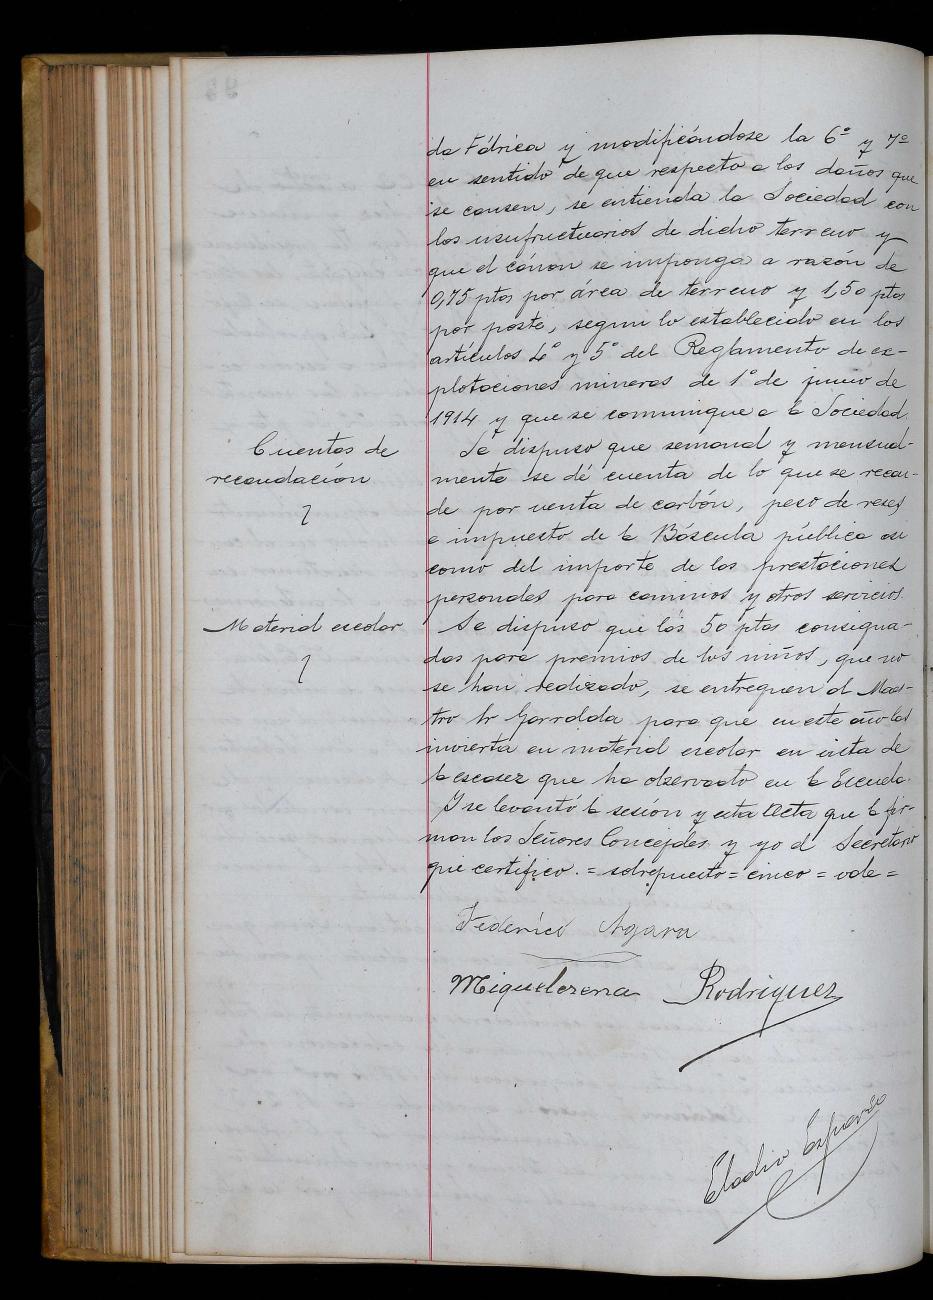 da Fábrica y modificándose la 6ª y 7ª
en sentido de que respecto a los daños que
se causen, se entienda la Sociedad con
los usufructuarios de dicho terreno y
que el cánon se imponga a razón de
0,75 ptas por área de terreno y 1,50 ptas
por poste, segun lo establecido en los
artículos 4º y 5º del Reglamento de ex-
plotaciones mineras de 1º de junio de
1914 y que se comunique a la Sociedad.
Cuentas de
recaudación
Se dispuso que semanal y mensual-
mente se dé cuenta de lo que se recau-
de por venta de carbón, peso de reses
e impuesto de la Báscula pública asi
como del importe de las prestaciones
personales para caminos y otros servicios.
Material escolar
Se dispuso que las 50 ptas consigna-
das para premios de los niños, que no
se han realizado, se entreguen al Maes-
tro Sr Garralda para que en este año las
invierta en material escolar en vista de
la escasez que ha observado en la Escuela.
Y se levantó la sesión y esta Acta que la fir-
man los Señores Concejales y yo el Secretario
que certifico. = sobrepuesto = cinco = vale =
Federico Agara
Miquelerena Rodriguez
Eladio Esparza